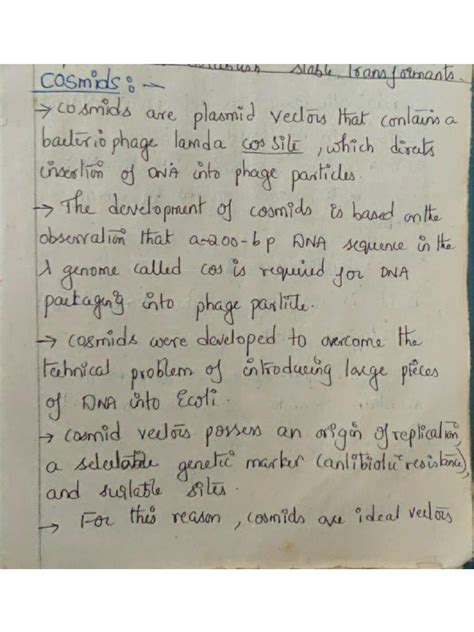 stable transformants.
COSmids : -
→ cosmids are plasmid vectors that contains a
bacteriophage lamda cos site, which directs
insertion of DNA into phage particles.
→ The development of cosmids is based on the
observation that a-200-bp DNA sequence in the
λ genome called cos is required for DNA
packaging into phage particle.
→ cosmids were developed to overcome the
technical problem of introducing large pieces
of DNA into Ecoli.
→ cosmid vectors possess an origin of replication,
a selectable genetic marker (antibiotic resistance),
and suitable sites.
→ For this reason, cosmids are ideal vectors